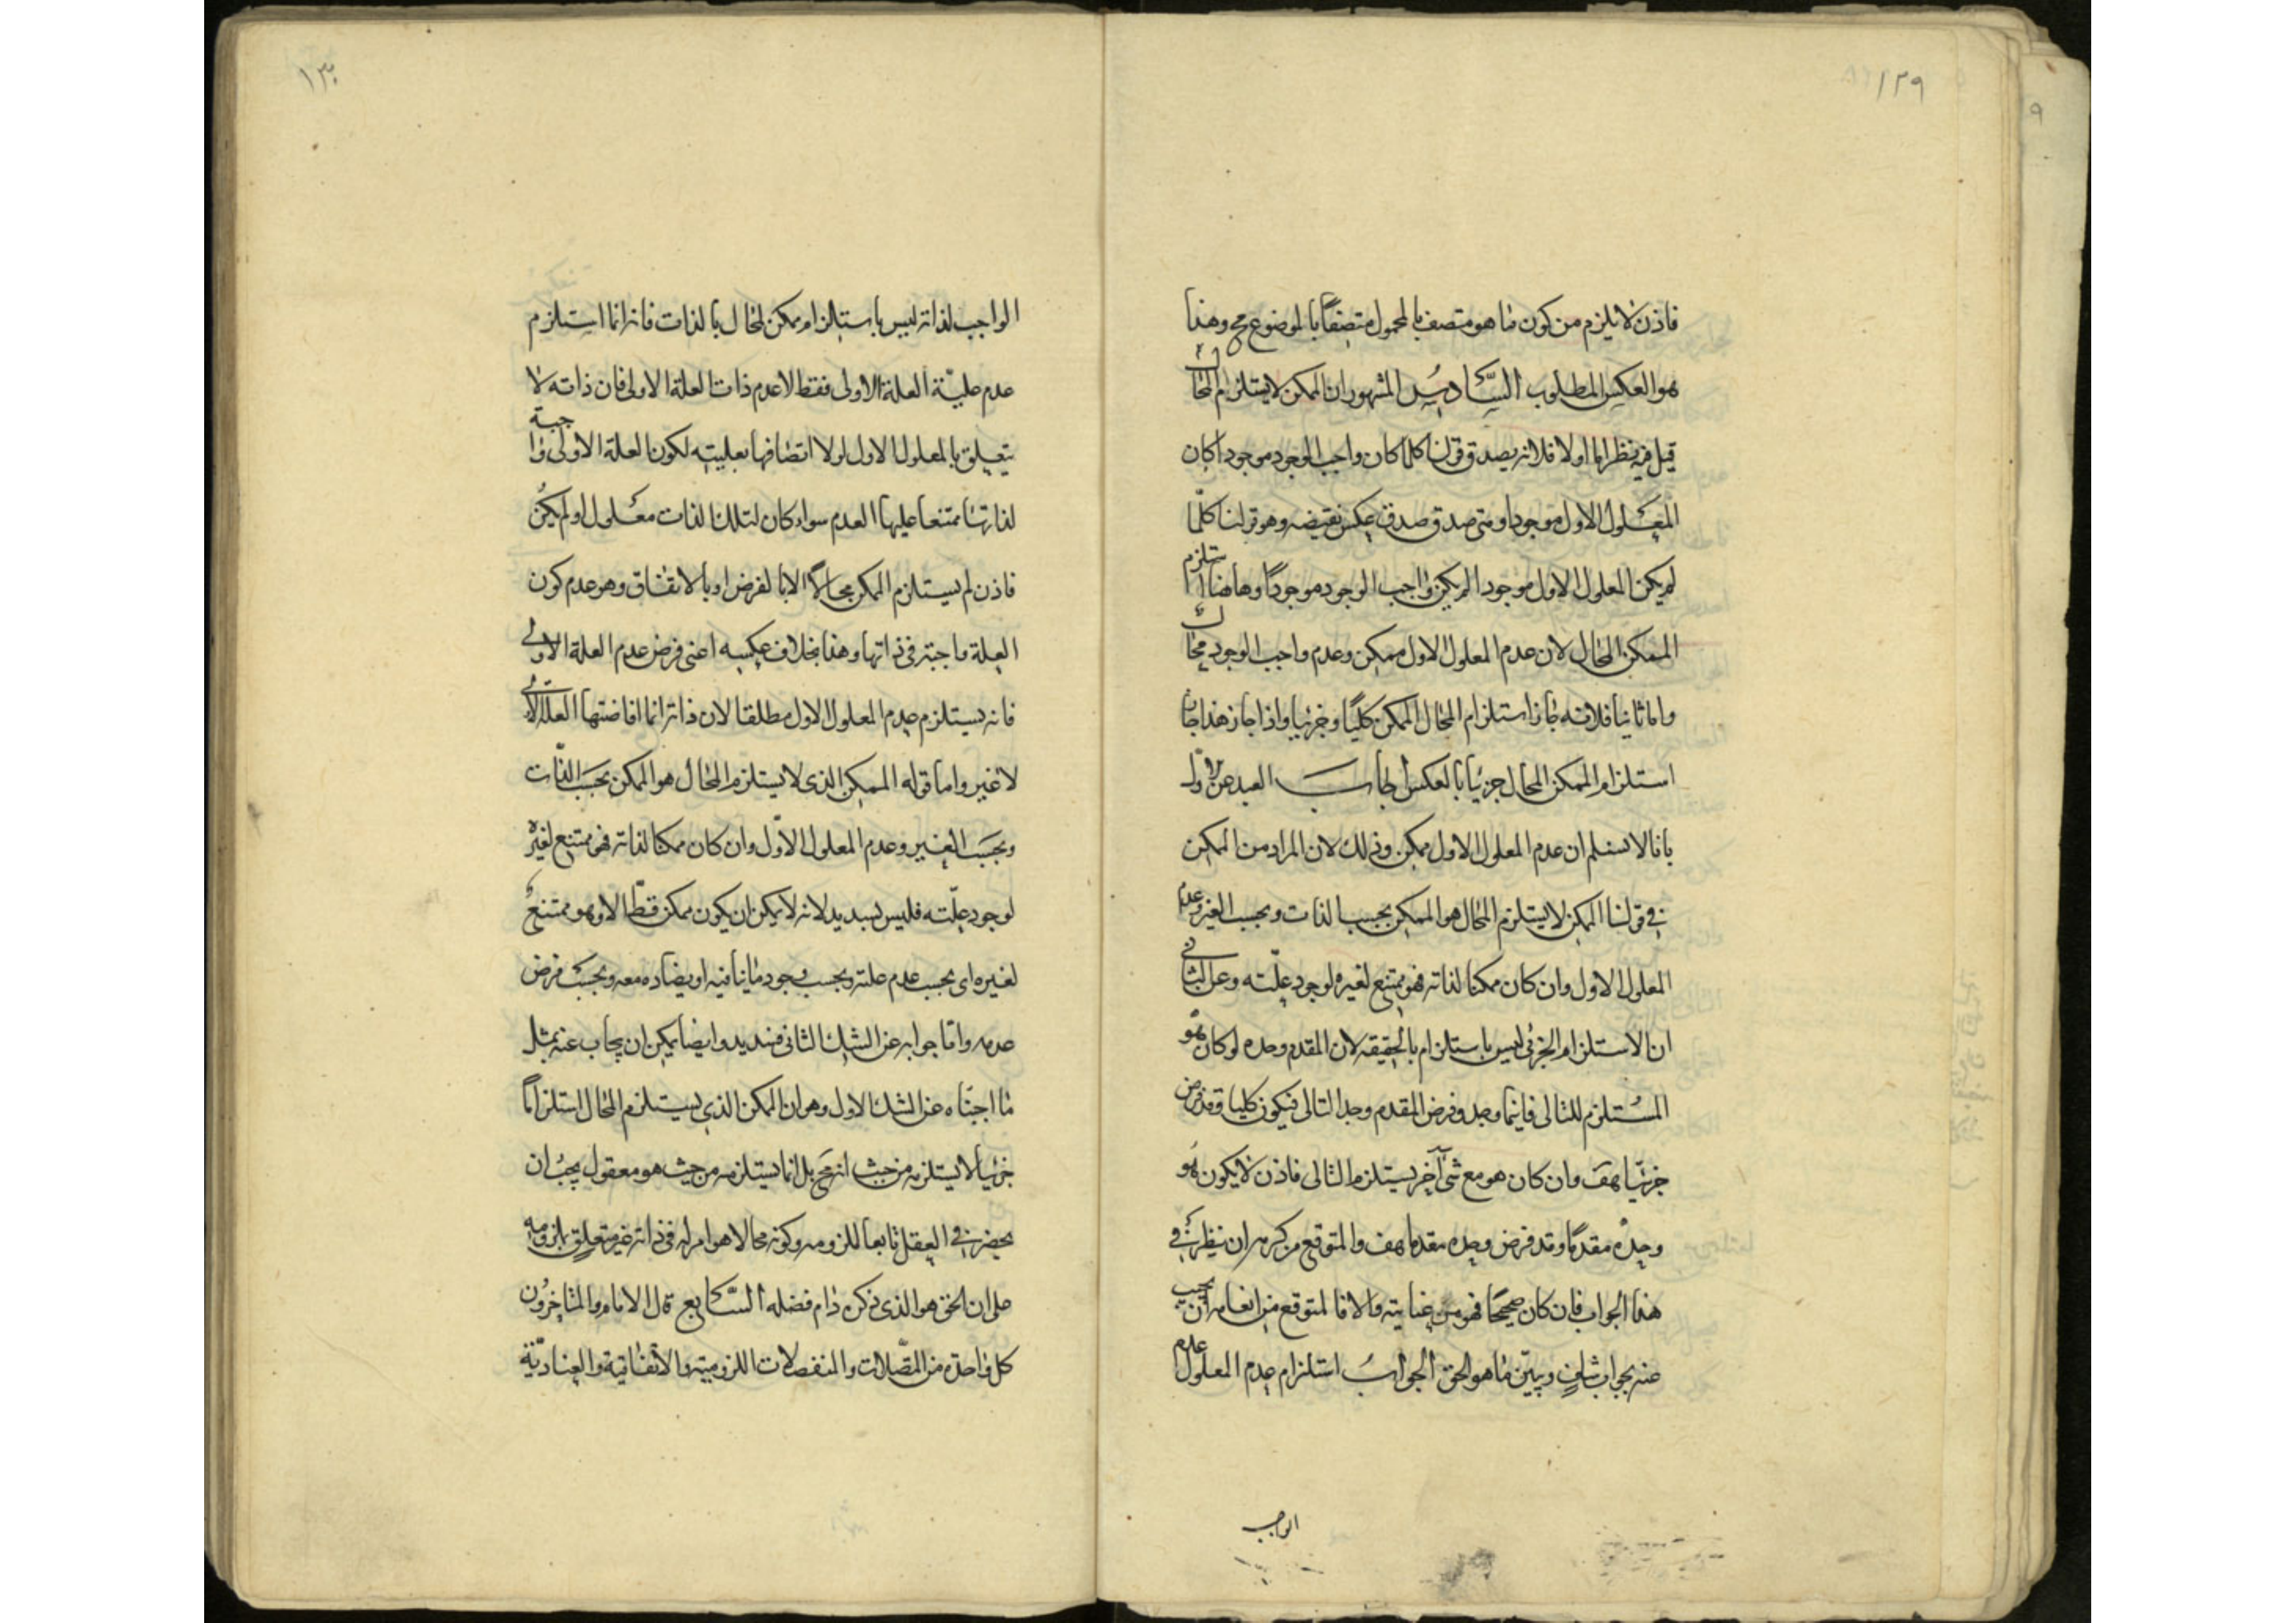 ١٢٩
فاذن لا يلزم من كون ما هو متصف بالمحمول متصفاً بالموضوع مح وهذا
هو العكس المطلوب السادس المشهور ان الممكن لا يستلزم المحال
قيل فيه نظر اما اولا فلانه يصدق قولنا كلما كان واجب الوجود موجودا كان
المعلول الاول موجودا ومتى صدق صدق عكس نقيضه وهو قولنا كلّما
لم يكن المعلول الاول موجودا لم يكن واجب الوجود موجوداً وهاهنا استلزم
الممكن المحال لان عدم المعلول الاول ممكن وعدم واجب الوجود محال
واما ثانيا فلانه جاز استلزام المحال الممكن كليًا وجزئيا واذا جاز هذا جاز
استلزام الممكن المحال جزئيا بالعكس اجاب العبد عن الاول
بانا لا نسلم ان عدم المعلول الاول ممكن وذلك لان المراد من الممكن
في قولنا الممكن لا يستلزم المحال هو الممكن بحسب الذات وبحسب الغير وعدم
المعلول الاول وان كان ممكنا لذاته فهو ممتنع لغيره لوجود علّته وعن الثاني
ان الاستلزام الجزئي ليس باستلزام بالحقيقه لان المقدم وحده لو كان هو
المستلزم للتالى فاينما وجد وفرض المقدم وجد التالى فيكون كليا وقد فرض
جزئيّا هف وان كان هو مع شئ آخر يستلزم التالى فاذن لا يكون هو
وحده مقدمًا وقد فرض وحده مقدما هف والمتوقع من كرمه ان ينظر في
هذا الجواب فان كان صحيحًا فهو من عنايته والا فالمتوقع من انعامه ان يجيب
عنه بجواب شاف ويبيّن ما هو الحق الجواب استلزام عدم المعلول عدم
الواجب
١٣٠
الواجب لذاته ليس باستلزام ممكن لمحال بالذات فانه انما استلزم
عدم عليّة العلة الاولى فقط لا عدم ذات العلة الاولى فان ذاته لا
يتعلق بالمعلول الاول لولا اتصافها بعليته لكون العلة الاولى واجبة
لذاتها ممتنعا عليها العدم سواء كان لتلك الذات معلول او لم يكن
فاذن لم يستلزم الممكن محالاً الا بالفرض او بالاتفاق وهو عدم كون
العلة واجبة في ذاتها وهذا بخلاف عكسه اعنى فرض عدم العلة الاولى
فانه يستلزم عدم المعلول الاول مطلقا لان ذاته انما افاضتها العلة الاولى
لا غير واما قوله الممكن الذى لا يستلزم المحال هو الممكن بحسب الذّات
وبحسب الغير وعدم المعلول الاوّل وان كان ممكنا لذاته فهو ممتنع لغيره
لوجود علّته فليس بسديد لانه لا يمكن ان يكون ممكن قطّ الا وهو ممتنع
لغيره اى بحسب عدم علته وبحسب وجود ما ينافيه او يضاده معه وبحسب فرض
عدمه وامّا جوابه عن الشك الثانى فسديد وايضا يمكن ان يجاب عنه بمثل
ما اجبناه عن الشك الاول وهو ان الممكن الذي يستلزم المحال استلزاماً
جزئيا لا يستلزمه من حيث انه مح بل انما يستلزمه من حيث هو معقول يجبُ ان
يحضر في العقل تابعا للزومه وكونه محالا هو امر له في ذاته غير متعلق بلزومه
على ان الحق هو الذى ذكره دام فضله السّابع قال الامام والمتاخرُون
كل واحدة من المتّصلات والمنفصلات اللزومية والاتفاقية والعناديّة